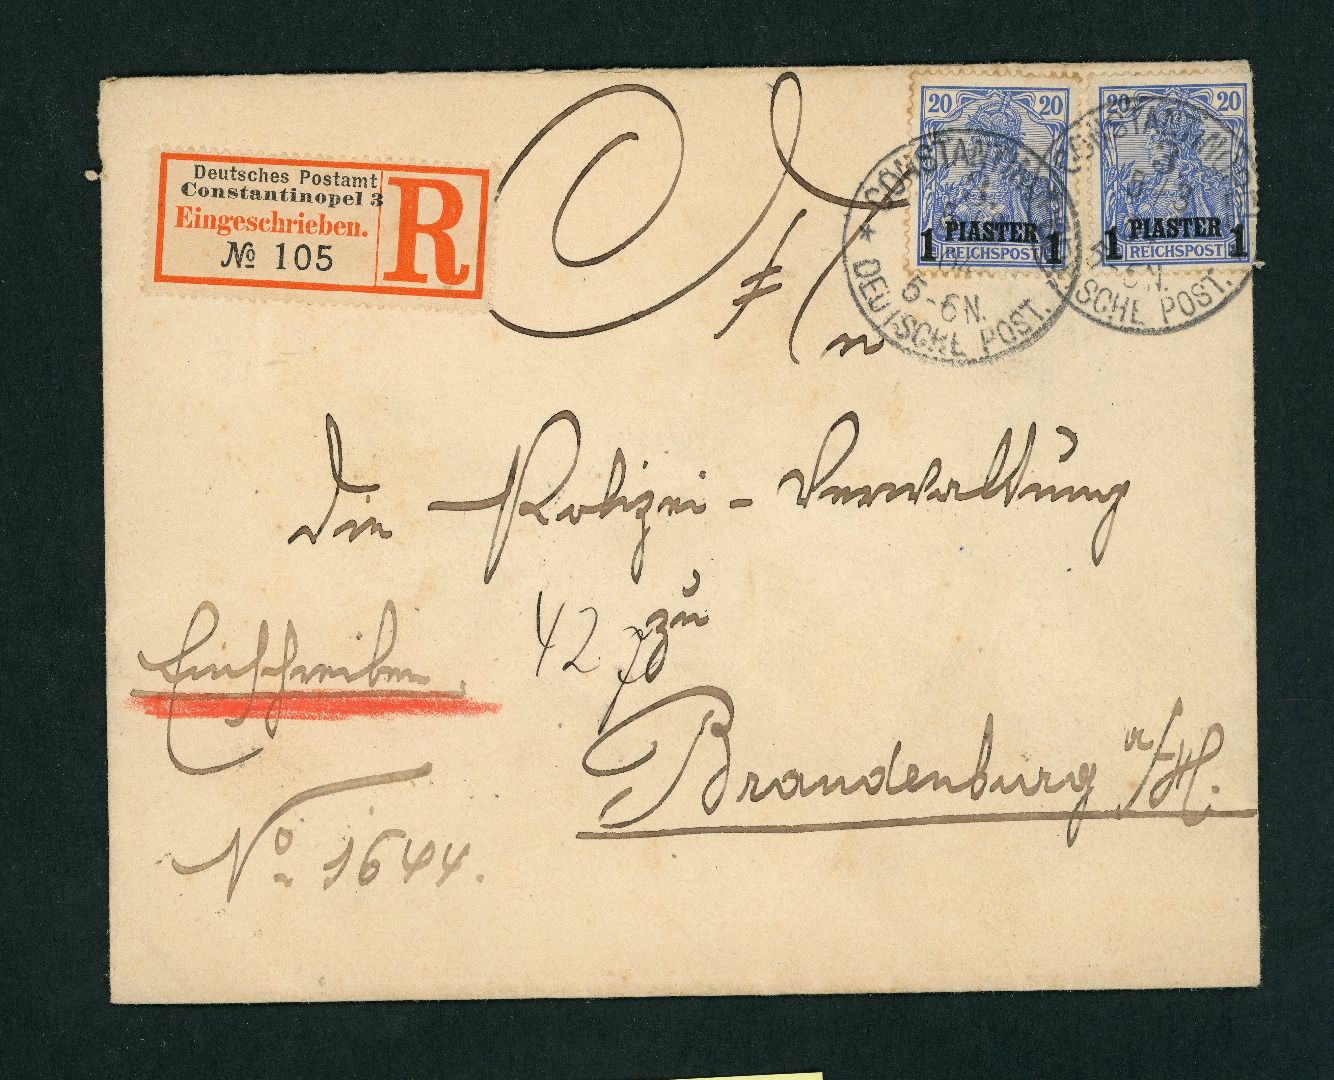 Deutsches Postamt
Constantinopel 3
Eingeschrieben.
№ 105
R
20 20
1 PIASTER 1
REICHSPOST
20 20
1 PIASTER 1
REICHSPOST
CONSTANTINOPEL
5-6N.
* DEUTSCHE POST.
CONSTANTINOPEL
5-6N.
DEUTSCHE POST.
An
die Polizei-Verwaltung
zu
42
Einschreiben.
Brandenburg a/H.
No 1644.